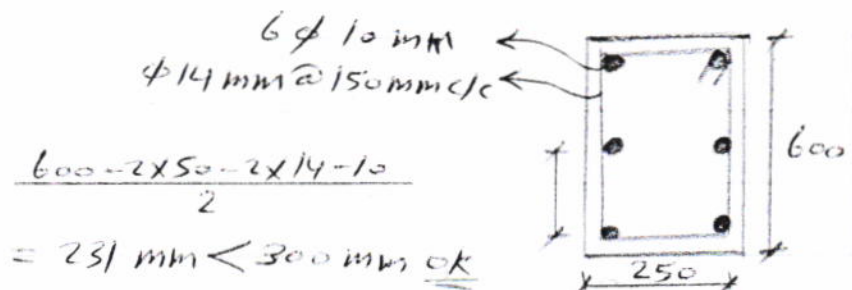 6 ϕ 10 mm
ϕ 14 mm @ 150 mm c/c
600
600 - 2x50 - 2x14 - 10
2
= 231 mm < 300 mm ok
250